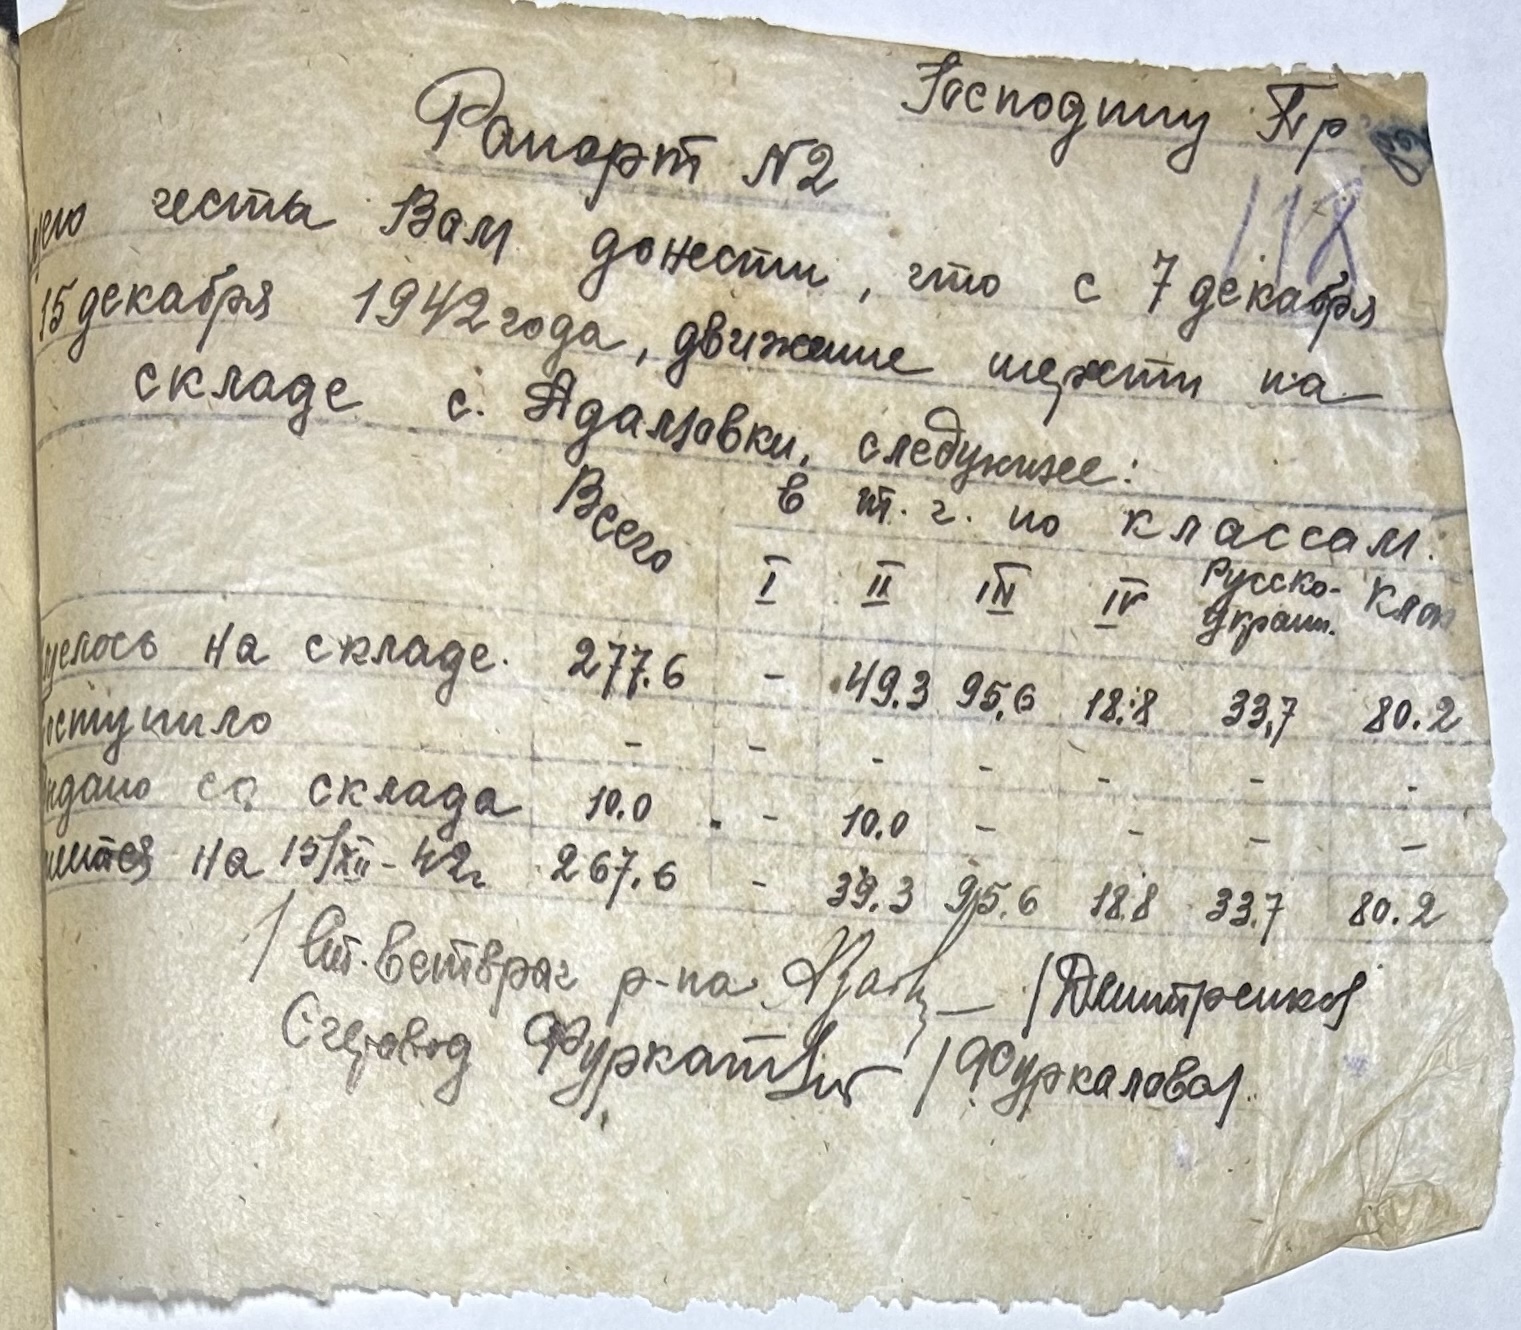 Господину Пр
118
Рапорт N2
мею честь Вам донести, что с 7 декабря
15 декабря 1942 года, движение шерсти на
складе с. Адамовки, следующее:
Всего в т. ч. по классам:
I II III IV Русско-Украин. Клок
мелось на складе. 277.6 - 49.3 95,6 18.8 33,7 80.2
оступило - - - - - - -
ыдано со склада 10.0 - 10.0 - - - -
меется на 15/XII-42г 267.6 - 39.3 95.6 18.8 33.7 80.2
/ Ст. Ветврач р-на /Дмитренко/
Счетовод /Фуркалова/.